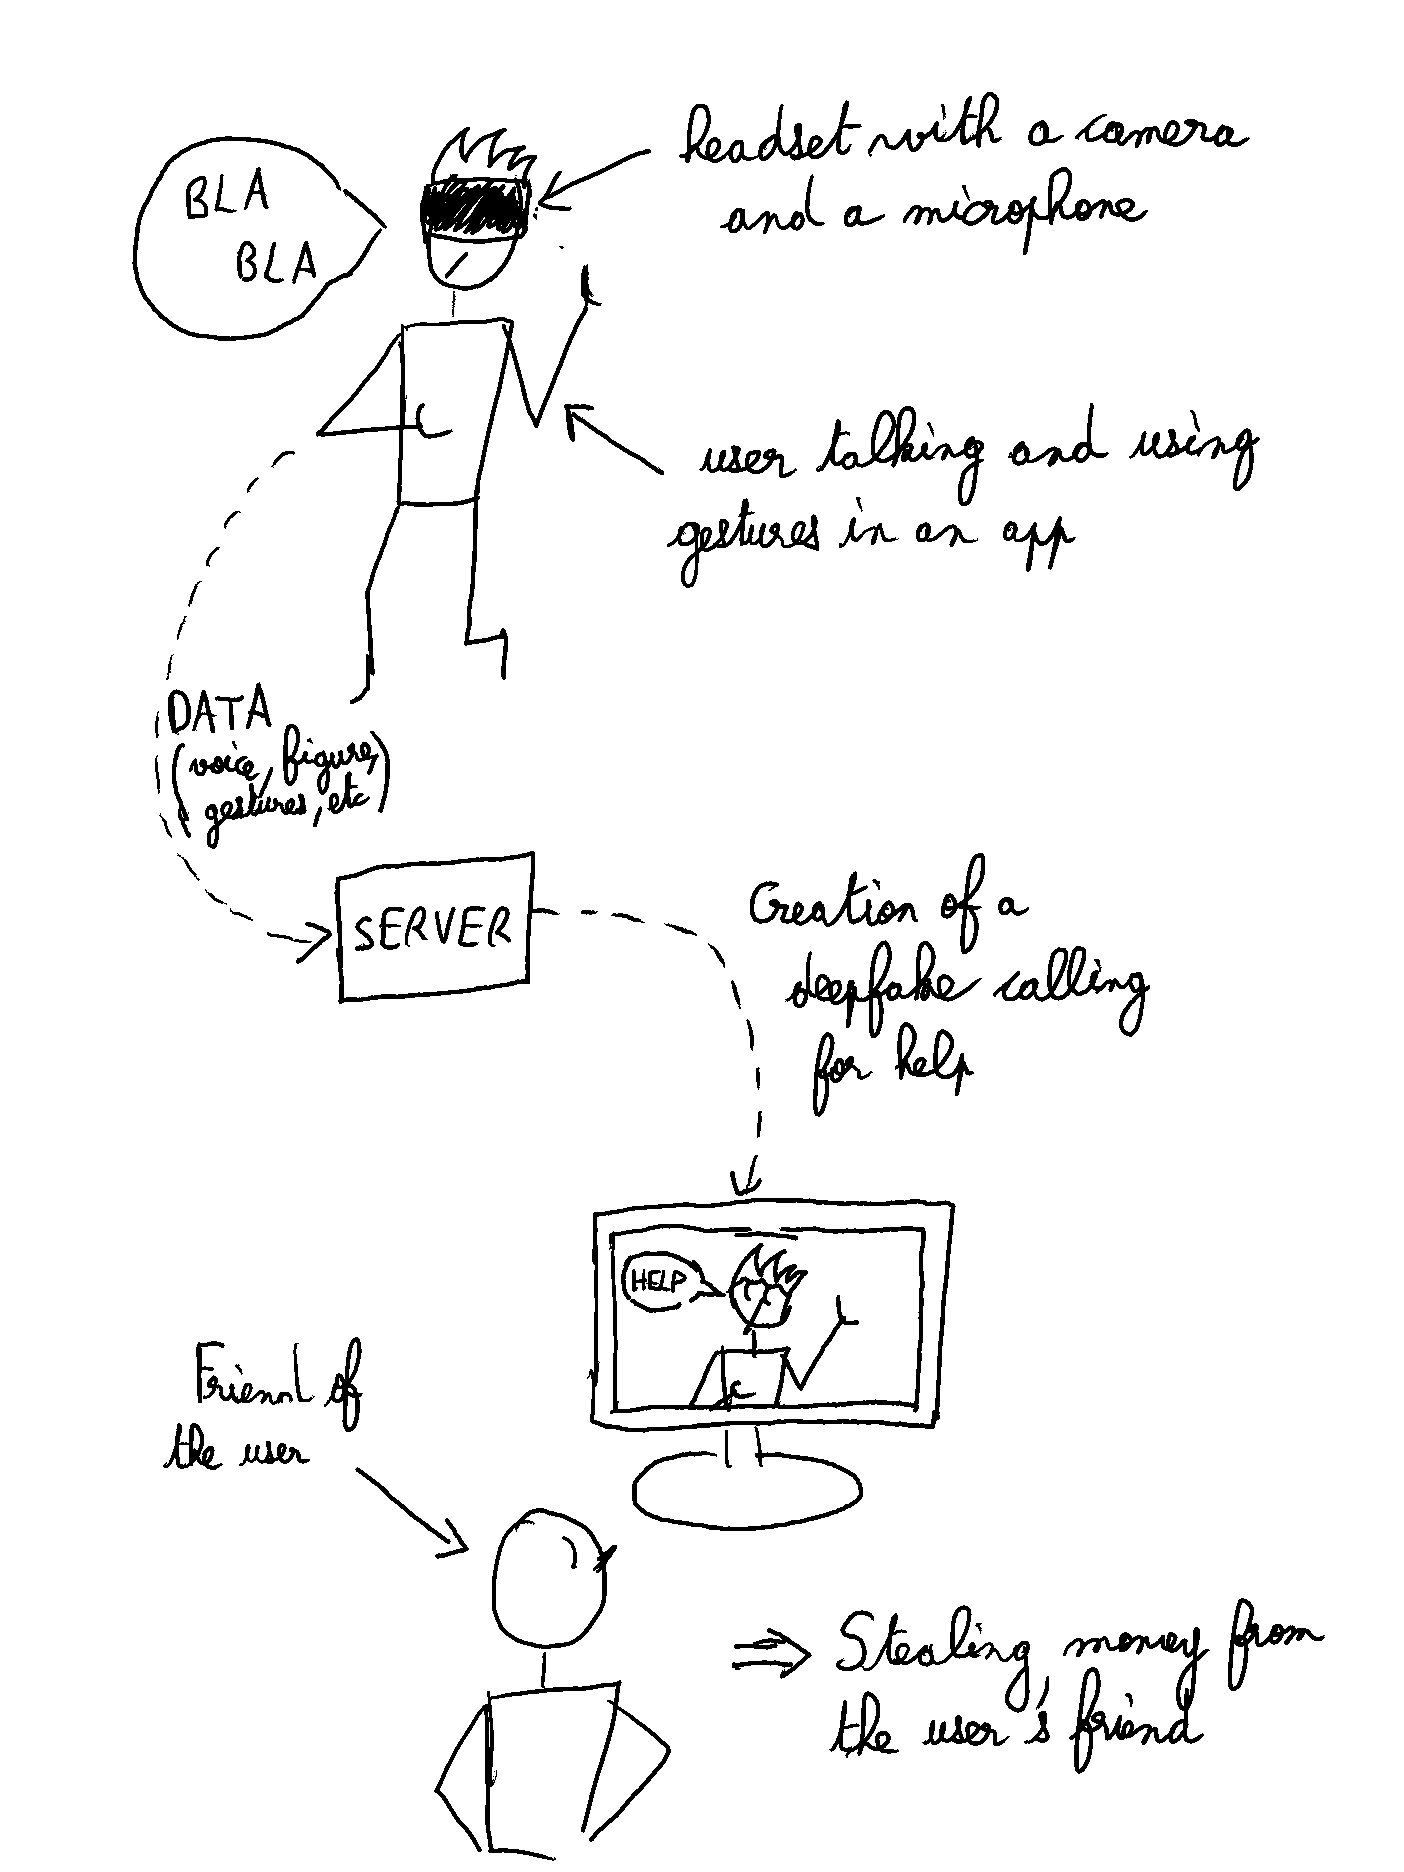 BLA
BLA
headset with a camera
and a microphone
user talking and using
gestures in an app
DATA
(voice, figure,
gestures, etc)
SERVER
Creation of a
deepfake calling
for help
HELP
Friend of
the user
⇒ Stealing money from
the user's friend